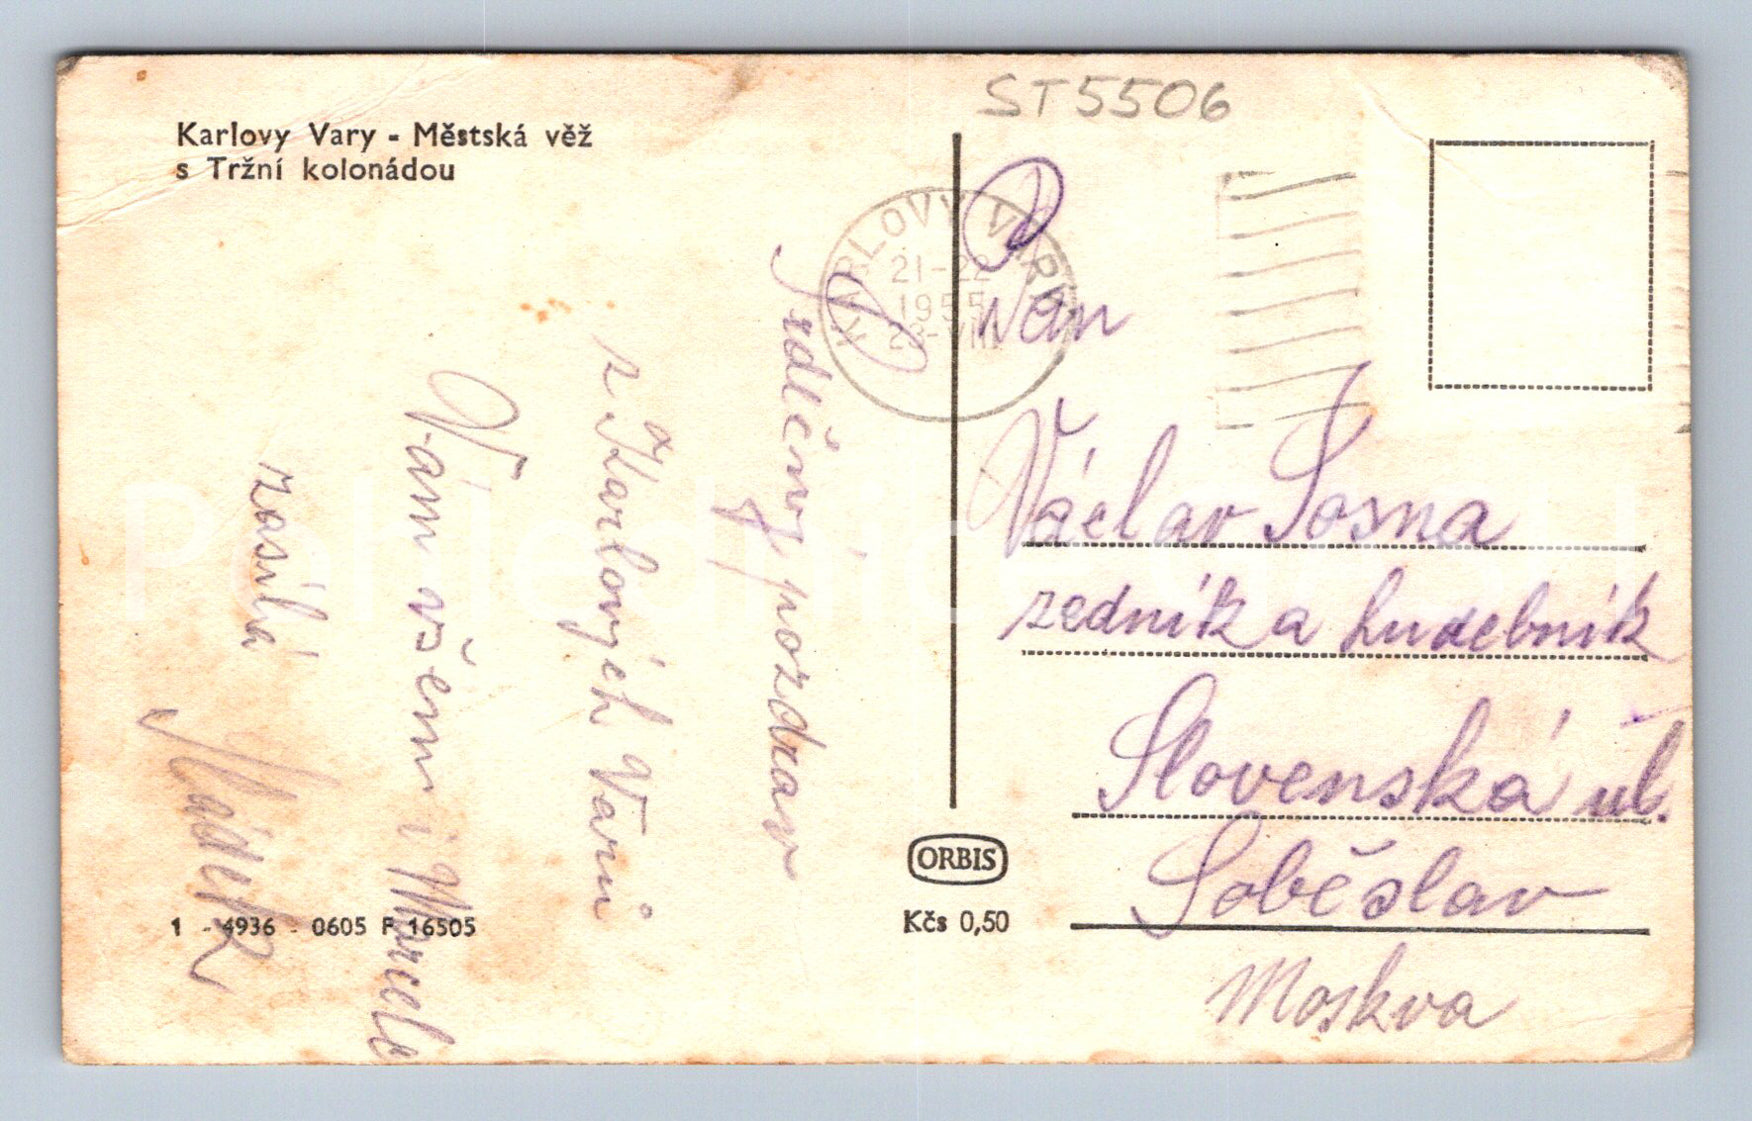 Karlovy Vary - Městská věž
s Tržní kolonádou
ST5506
KARLOVY VARY
21-22
1955
23-VIII
Srdečný pozdrav
z Karlových Varů
Vám všem i
zasílá
Pán
Václav Sosna
zedník a hudebník
Slovenská ul.
Soběslav
Moskva
ORBIS
Kčs 0,50
1 - 4936 - 0605 P 16505